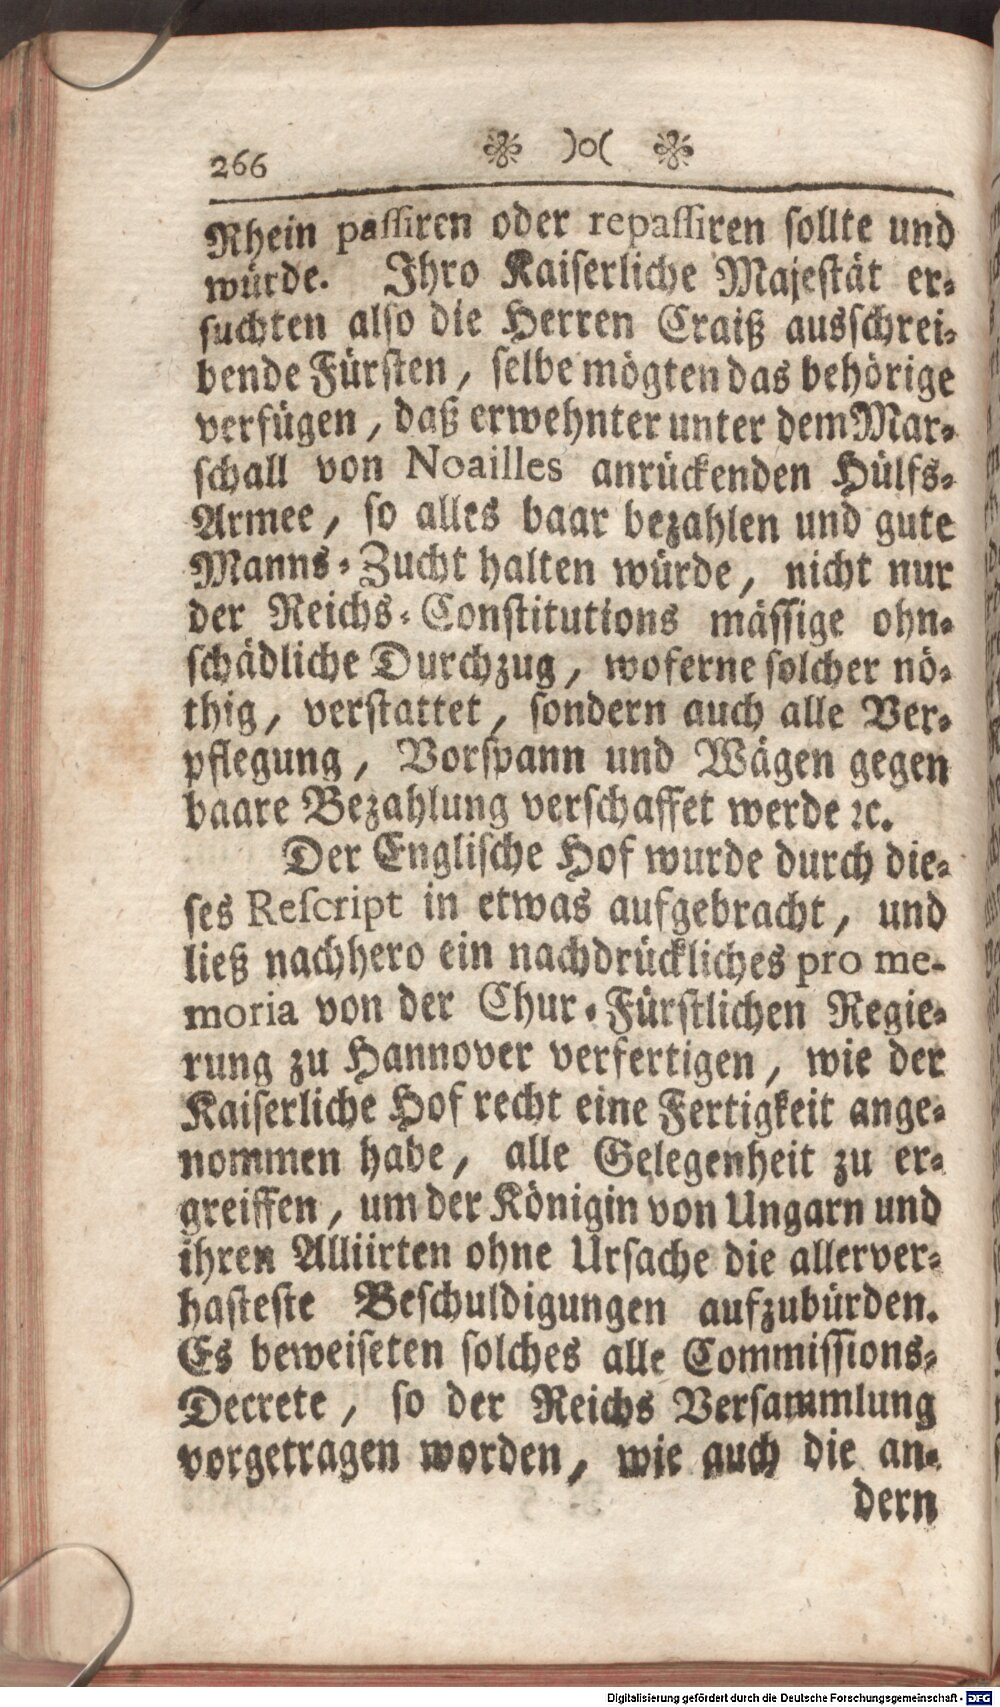 266 )o(
Rhein passiren oder repassiren sollte und
würde. Ihro Kaiserliche Majestät er-
suchten also die Herren Craiß ausschrei-
bende Fürsten, selbe mögten das behörige
verfügen, daß erwehnter unter dem Mar-
schall von Noailles anrückenden Hülfs-
Armee, so alles baar bezahlen und gute
Manns-Zucht halten würde, nicht nur
der Reichs-Constitutions mässige ohn-
schädliche Durchzug, woferne solcher nö-
thig, verstattet, sondern auch alle Ver-
pflegung, Vorspann und Wägen gegen
baare Bezahlung verschaffet werde ꝛc.
Der Englische Hof wurde durch die-
ses Rescript in etwas aufgebracht, und
ließ nachhero ein nachdrückliches pro me-
moria von der Chur-Fürstlichen Regie-
rung zu Hannover verfertigen, wie der
Kaiserliche Hof recht eine Fertigkeit ange-
nommen habe, alle Gelegenheit zu er-
greiffen, um der Königin von Ungarn und
ihren Alliirten ohne Ursache die allerver-
hasteste Beschuldigungen aufzubürden.
Es beweiseten solches alle Commissions-
Decrete, so der Reichs Versammlung
vorgetragen worden, wie auch die an-
dern
Digitalisierung gefördert durch die Deutsche Forschungsgemeinschaft - DFG